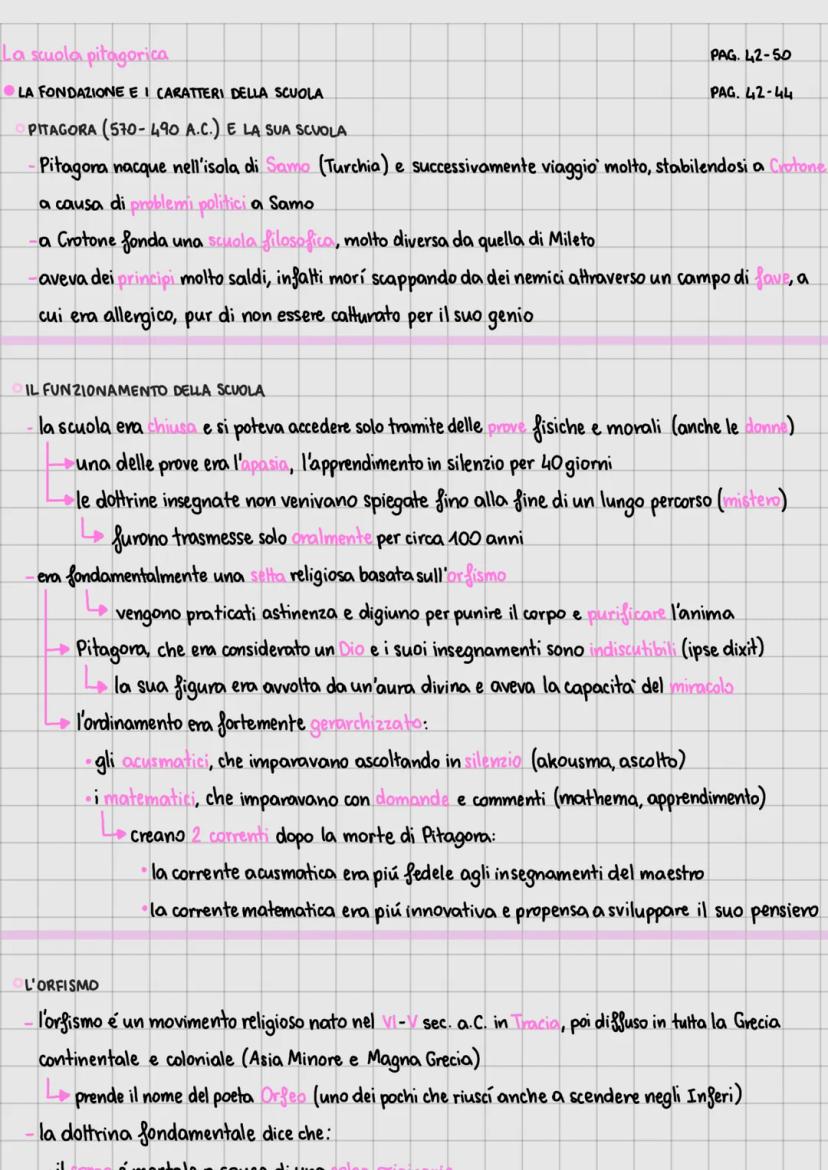 La scuola pitagorica PAG. 42-50
LA FONDAZIONE E I CARATTERI DELLA SCUOLA PAG. 42-44
PITAGORA (570-490 A.C.) E LA SUA SCUOLA
- Pitagora nacque nell'isola di Samo (Turchia) e successivamente viaggio' molto, stabilendosi a Crotone
a causa di problemi politici a Samo
- a Crotone fonda una scuola filosofica, molto diversa da quella di Mileto
- aveva dei principi molto saldi, infatti morí scappando da dei nemici attraverso un campo di fave, a
cui era allergico, pur di non essere catturato per il suo genio
IL FUNZIONAMENTO DELLA SCUOLA
- la scuola era chiusa e si poteva accedere solo tramite delle prove fisiche e morali (anche le donne)
una delle prove era l'apasia, l'apprendimento in silenzio per 40 giorni
le dottrine insegnate non venivano spiegate fino alla fine di un lungo percorso (mistero)
furono trasmesse solo oralmente per circa 100 anni
- era fondamentalmente una setta religiosa basata sull'orfismo
vengono praticati astinenza e digiuno per punire il corpo e purificare l'anima
Pitagora, che era considerato un Dio e i suoi insegnamenti sono indiscutibili (ipse dixit)
la sua figura era avvolta da un'aura divina e aveva la capacita' del miracolo
l'ordinamento era fortemente gerarchizzato:
• gli acusmatici, che imparavano ascoltando in silenzio (akousma, ascolto)
• i matematici, che imparavano con domande e commenti (mathema, apprendimento)
creano 2 correnti dopo la morte di Pitagora:
• la corrente acusmatica era piú fedele agli insegnamenti del maestro
• la corrente matematica era piú innovativa e propensa a sviluppare il suo pensiero
L'ORFISMO
- l'orfismo é un movimento religioso nato nel VI-V sec. a.C. in Tracia, poi diffuso in tutta la Grecia
continentale e coloniale (Asia Minore e Magna Grecia)
prende il nome del poeta Orfeo (uno dei pochi che riuscí anche a scendere negli Inferi)
- la dottrina fondamentale dice che:
il corpo é mortale a causa di una colpa originaria